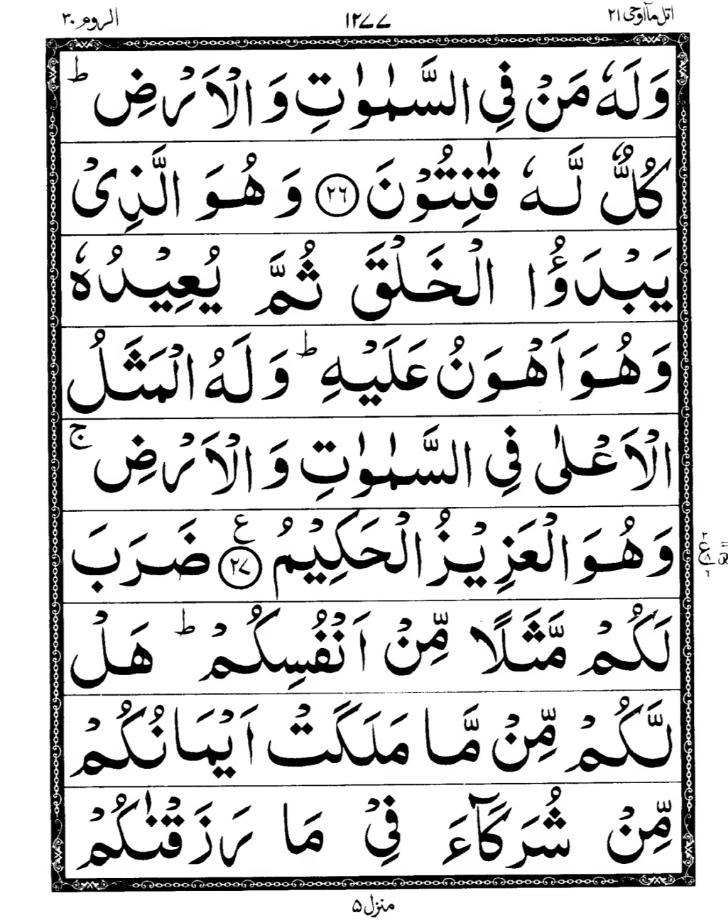 اتل مآاوحی ۲۱ ۱۲۷۷ الروم ۳۰
وَلَهٗ مَنْ فِی السَّمٰوٰتِ وَ الْاَرْضِ ؕ
كُلٌّ لَّهٗ قٰنِتُوْنَ ۲۶ وَ هُوَ الَّذِیْ
یَبْدَؤُا الْخَلْقَ ثُمَّ یُعِیْدُهٗ
وَ هُوَ اَهْوَنُ عَلَیْهِ ؕ وَ لَهُ الْمَثَلُ
الْاَعْلٰی فِی السَّمٰوٰتِ وَ الْاَرْضِ ۚ
وَ هُوَ الْعَزِیْزُ الْحَكِیْمُ ۲۷ ع ضَرَبَ
لَكُمْ مَّثَلًا مِّنْ اَنْفُسِكُمْ ؕ هَلْ
لَّكُمْ مِّنْ مَّا مَلَكَتْ اَیْمَانُكُمْ
مِّنْ شُرَكَآءَ فِیْ مَا رَزَقْنٰكُمْ
منزل ۵